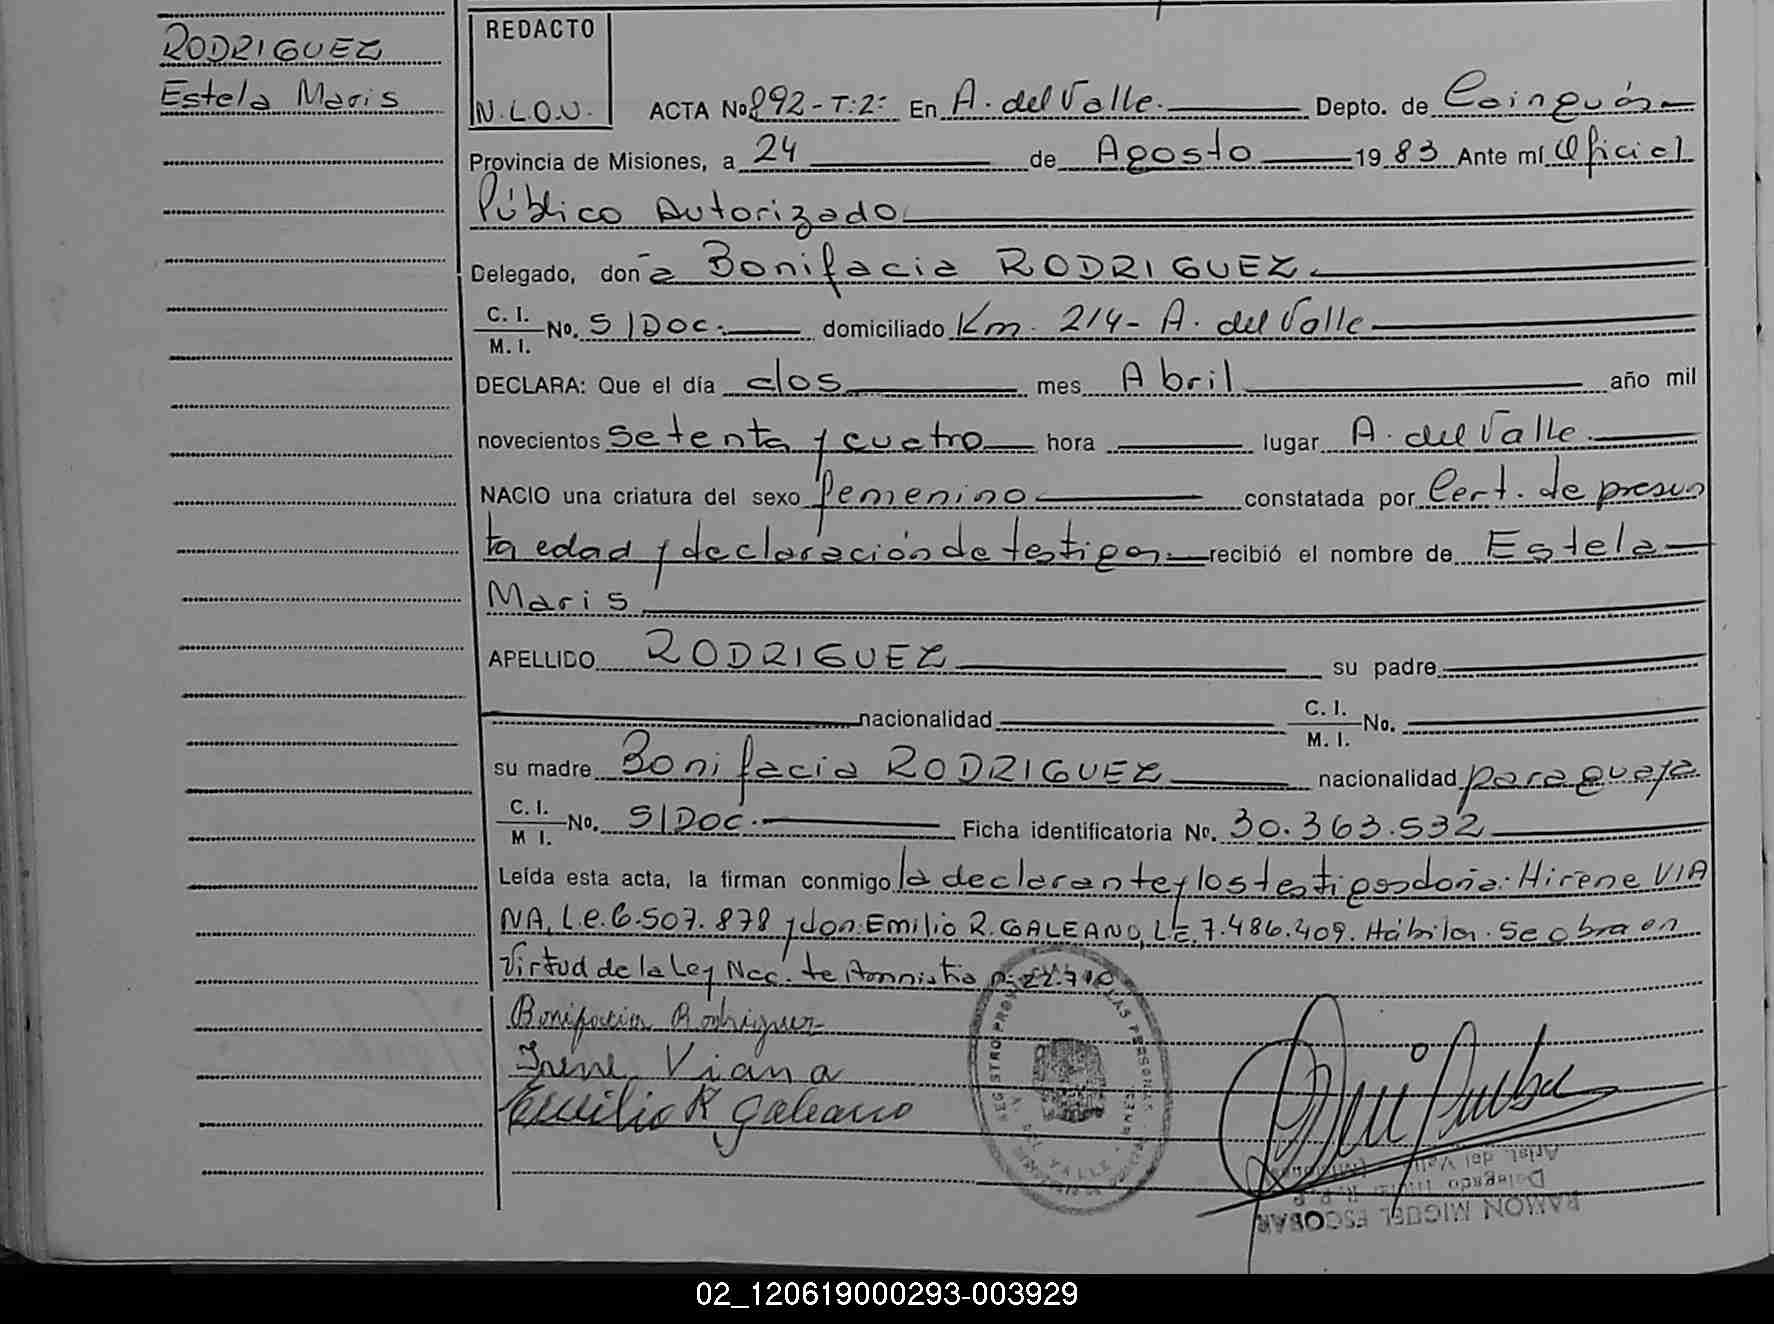 RODRIGUEZ
Estela Maris
REDACTO
N.L.O.U.
ACTA No 892-T:2: En A. del Valle. Depto. de Cainguás
Provincia de Misiones, a 24 de Agosto 1983 Ante mí Oficial
Público Autorizado
Delegado, don a Bonifacia RODRIGUEZ.
C. I.
M. I. No. S/DOC. domiciliado Km. 214- A. del Valle
DECLARA: Que el día dos mes Abril año mil
novecientos setenta y cuatro hora lugar A. del Valle.
NACIO una criatura del sexo femenino constatada por Cert. de presun
ta edad y declaración de testigos recibió el nombre de Estela
Maris
APELLIDO RODRIGUEZ su padre
nacionalidad C. I.
M. I. No.
su madre Bonifacia RODRIGUEZ nacionalidad paraguaya
C. I.
M I. No. S/DOC. Ficha identificatoria No. 30.363.532
Leída esta acta, la firman conmigo la declarante y los testigos doña: Hirene VIA
NA, L.e. 6.507.878 y don Emilio R. GALEANO, L.E. 7.486.409. Hábiles. Se obra en
Virtud de la Ley Nac. de Amnistia n: 22.710
Bonifacia Rodriguez
Irene Viana
Emilio R Galeano
Arist. del Valle (Misiones)
Delegado Titular R.P.P.
RAMON MIGUEL ESCOBAR
02_120619000293-003929